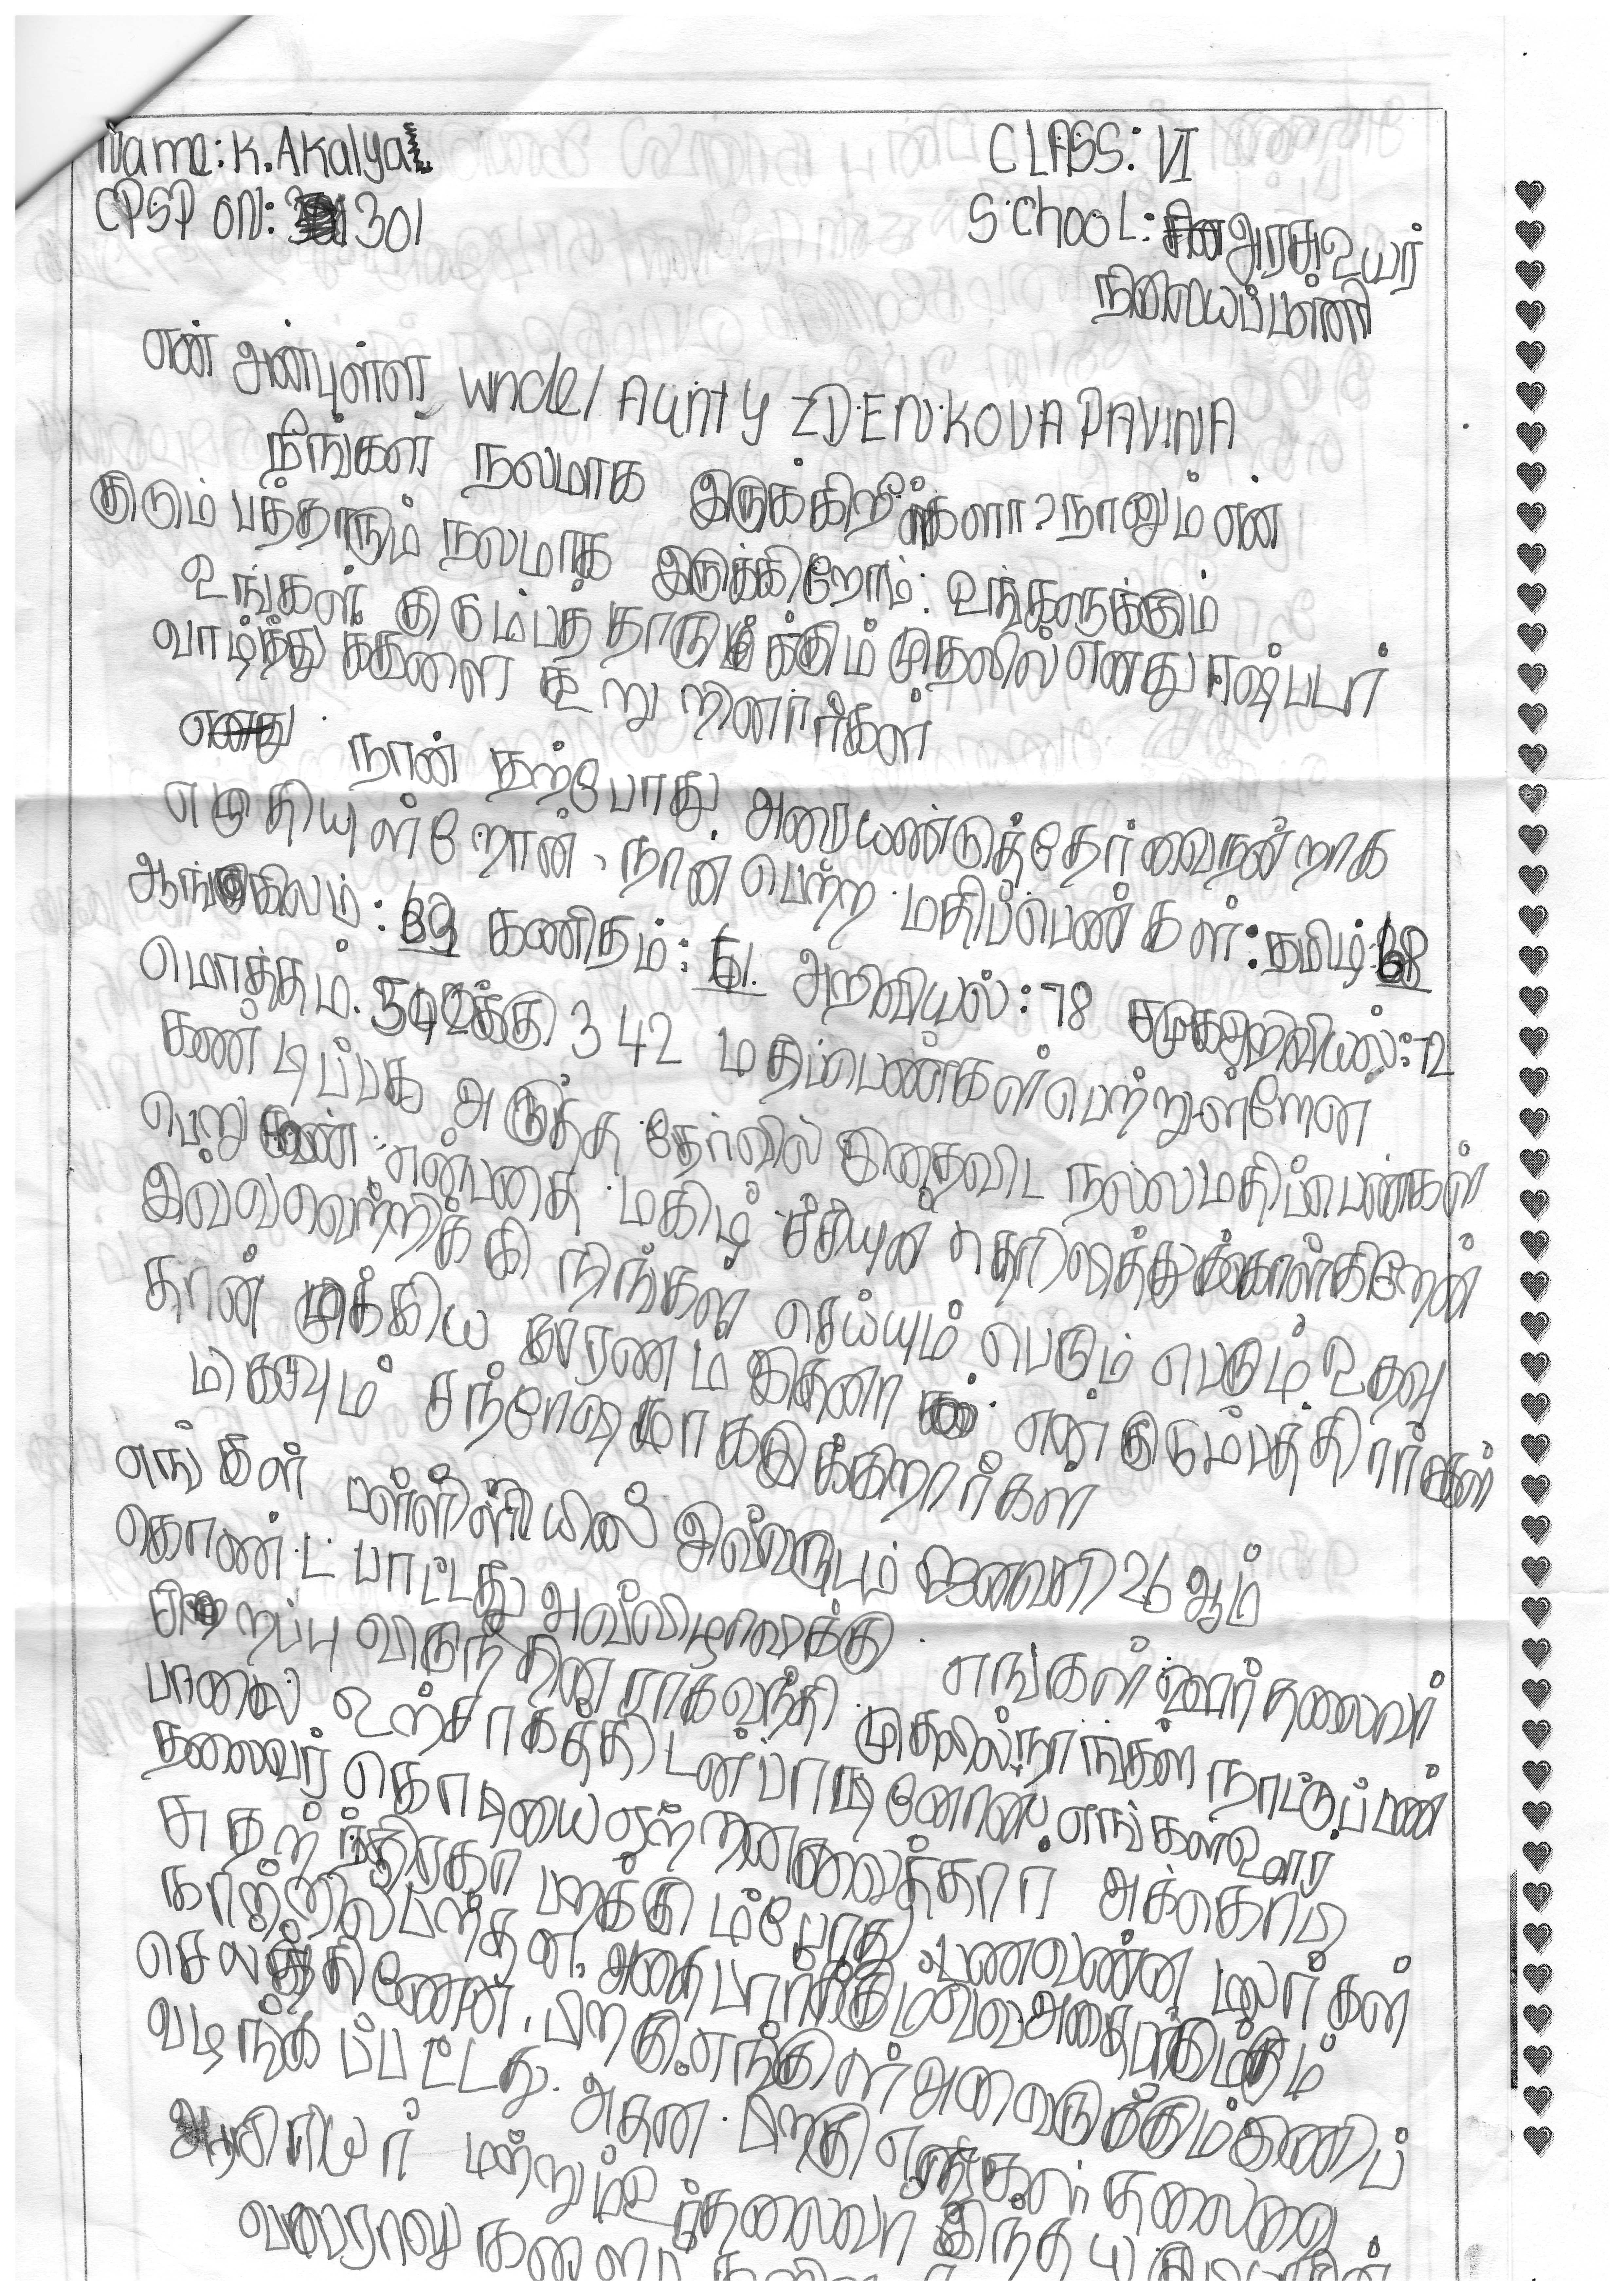 Name: K. Akalya
CPSP ON: 301
CLASS: VI
SchooL: அரசு உயர்
நிலையப்பள்ளி
என் அன்புள்ள uncle/ Aunty ZDENKOVA PAVINA
நீங்கள் நலமாக இருக்கிறீர்களா? நானும் என்
குடும்பத்தாரும் நலமாக இருக்கிறோம். உங்களுக்கும்
உங்கள் குடும்பத்தாருக்கும் முதலில் எனது ஈஷ்டர்
வாழ்த்துக்களை கூறுறினார்கள்
நான் தற்போது அரையண்டுத்தேர்வை நன்றாக
எழுதியுள்றேன். நான் பெற்ற மதிப்பெண்கள்: தமிழ்: 68
ஆங்கிலம்: 63 கணிதம்: 61. அறிவியல்: 78 சமுகஅறிவியல்: 72
மொத்தம். 500க்கு 342 மதிப்பெண்கள் பெற்றுள்றேன்
கண்டிப்பக அடுத்த தேர்வில் இதைவிட நல்ல மதிப்பெண்கள்
பெறுவேன் என்பதை மகிழ்ச்சியுன் தெரிவித்துக்கொள்கிறேன்
இவ்வெற்றிக்கு நிங்கள் செய்யும் பெடும் பெடும் உதவு
தான் முக்கிய காரணம் இதனால் என் குடும்பத்திரார்கள்
மிகவும் சந்தோஷமாகஇக்கிறார்கள்
எங்கள் பள்ளியில் இவ்வருடம் ஜனவரி 26 ஆம்
கொண்டபாட்டது அவ்விழாவுக்கு எங்கள் ஊர் தலைவர்
சிறறப்பு விருந்தினராகவந்தி முதலில் நாங்கள் நாட்டுப்பண்
பாலை உற்சாகத்திடன் பாடினோம். எங்கள் ஊர்
தலைவர் கொடியை ஏற்றினவைத்தார் அக்கொடி
சுதந்திரகா பறக்கும்போது வணவண்ன மலர்கள்
காற்றில் பறந்தன. அதை பார்க்கும்
செலுத்தினேன். பிறகு எங்கள் அனைவருக்கும் இனிப்
வழங்கப்பட்டது. அதன் பிறகு எங்கள் தலைமை
ஆசிரியர் மற்றும் ஊர்தலைவர் இந்த